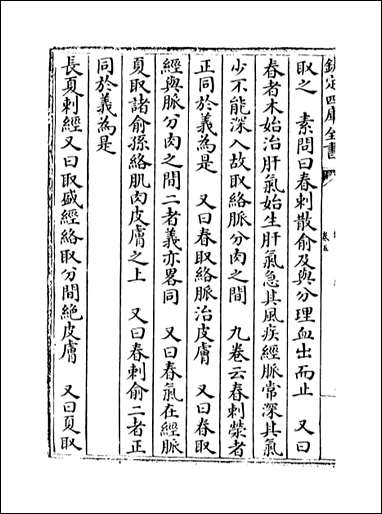 欽定四庫全書
卷五
取之　素問曰春刺散俞及與分理血出而止　又曰
春者木始治肝氣始生肝氣急其風疾經脈常深其氣
少不能深入故取絡脈分肉之間　九卷云春刺滎者
正同於義為是　又曰春取絡脈治皮膚　又曰春取
經與脈分肉之間二者義亦畧同　又曰春氣在經脈
夏取諸俞孫絡肌肉皮膚之上　又曰春刺俞二者正
同於義為是
長夏刺經又曰取盛經絡取分間絕皮膚　又曰夏取